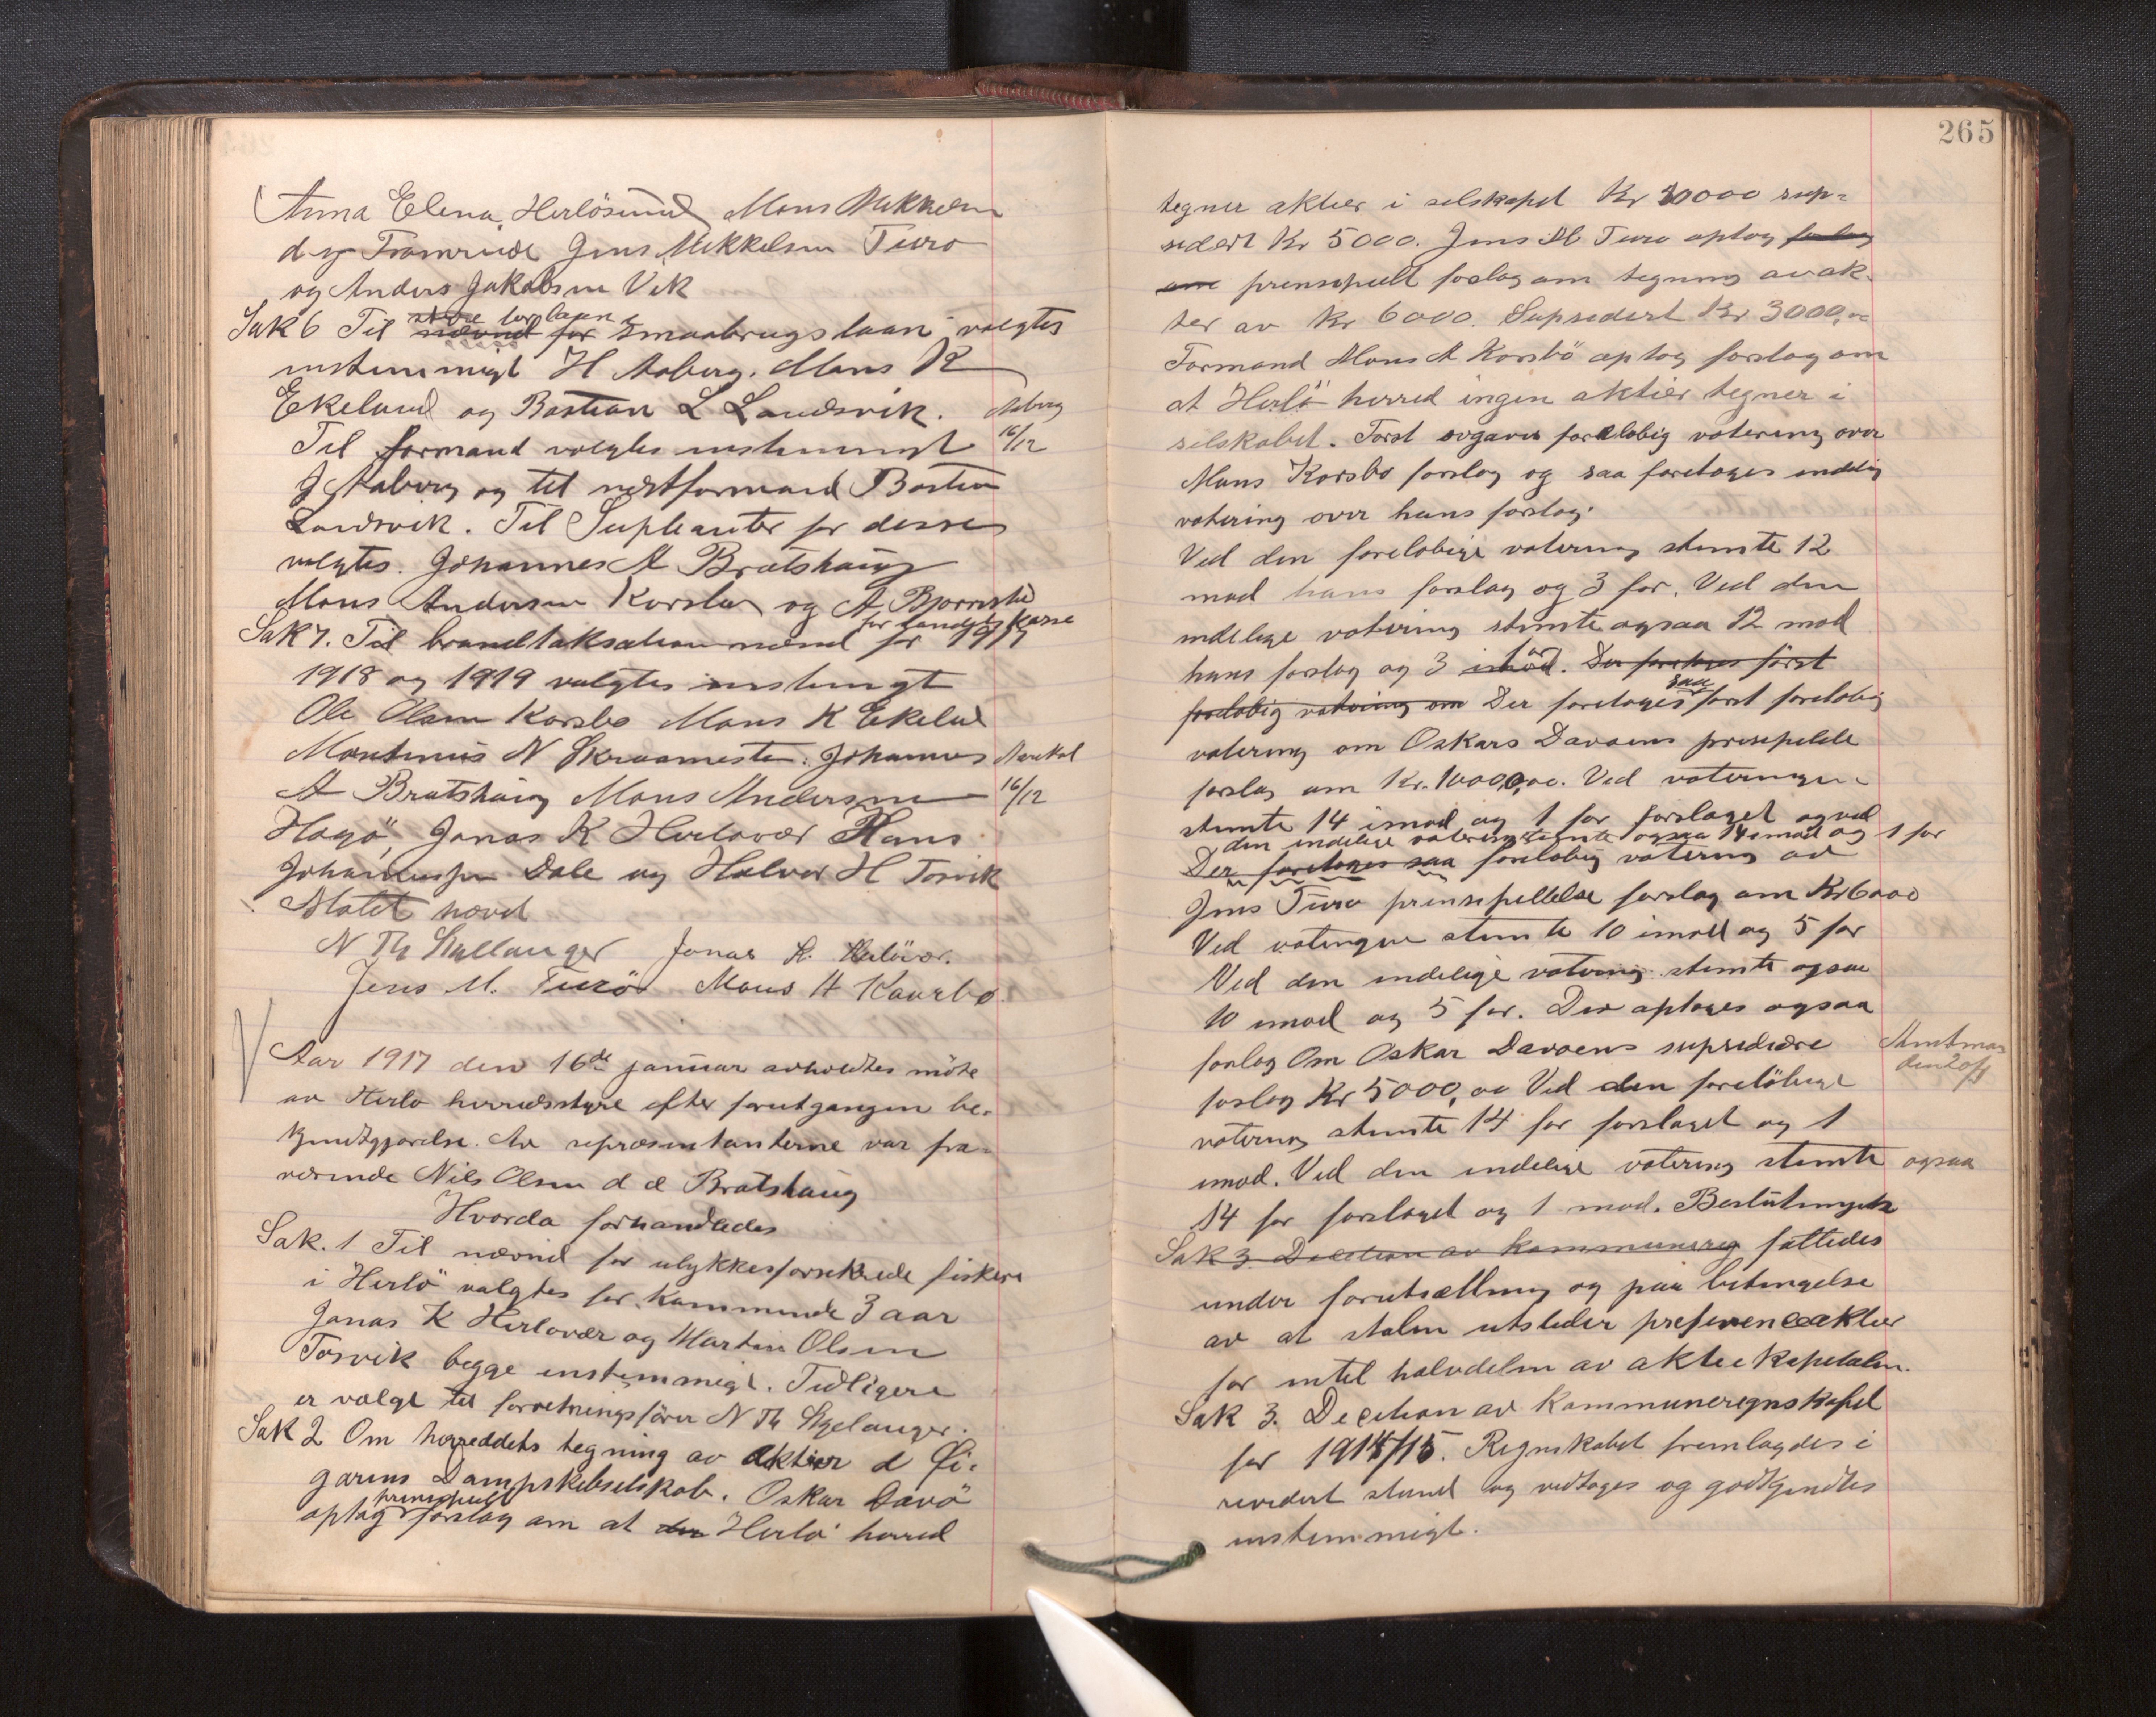 Anna Elena Herlösund Mons Mikkelsen
d y Framriide Jens Mikkelsen Turo
og Anders Jakobsen Vik
styre for laan
Sak 6 Til nævnd for smaabrugslaan valgtes
enstemmigt H Aaberg. Mons R
Ekeland og Bastian L Landsvik. Aaberg
Til formand valgtes enstemmigt 16/12
J Aaberg og til næstformand Bastian
Landsvik. Til Supleanter for disse
valgtes. Johannes A Bratshaug
Mons Andersen Korsbø og A. Bjørnstad
for landets kasse
Sak 7. Til brandtaksationsnævnd for 1917
1918 og 1919 valgtes enstemigt
Ole Olsen Korsbø Mons K Ekelad
Martinus N Skraamestø. Johannes
A Bratshaug Mons Andersen 16/12
Hagö, Jonas K Herlovær Hans
Johannessen Dale og Halvor H Torvik
Møtet hævet
N Th Skjellanger Jonas K. Herlövær.
Jens M. Turö Mons A Kaarbø
Aar 1917 den 16de januar avholdtes möte
av Herlø herredsstyre efter forutgangen be-
kjendtgjørelse. Av repræsentanterne var fra-
værende Nils Olsen d æ Bratshaug
Hvorda forhandledes
Sak. 1 Til nævnd for ulykkesforsikrede fiskere
i Herlö valgtes for kommende 3 aar
Jonas K Herlovær og Martin Olsen
Torvik begge enstemmigt. Tidligere
er valgt til forretningsfører N Th Skjelanger.
Sak 2 Om herreddets tegning av aktier d Øi-
garens Dampskibselskab. Oskar Davö
prinsipielt
optog forslag om at den Herlø herred
265
tegner aktier i selskapet Kr 10000 sup-
sedert Kr 5000. Jens M Turø optog forslag
om prensipielt forslag om tegning av ak-
ter av Kr 6000. Supsedert Kr 3000,00
Formand Mons A Korsbö optog forslag om
at Herlö herred ingen aktier tegner i
selskabet. Først avgaves foreløbig votering over
Mons Korsbø forslag og saa foretoges endelig
votering over hans forslag.
Ved den foreløbige votering stemte 12
mod hans forslag og 3 for. Ved den
endelige votering stemte ogsaa 12 mod
for
hans forslag og 3 imod. Der foretoges först
saa
foreløbig votering om Der foretoges først foreløbig
votering om Oskars Davøens prinsipelle
forslag om Kr. 10000,00. Ved voteringen
stemte 14 imod og 1 for forslaget og ved
den endelige votering stemte ogsaa 14 imod og 1 for
Der foretoges saa foreløbig votering av
Jens Turø prinsipellelse forslag om Kr 6000
Ved votingen stemte 10 imod og 5 for
Ved den endelige votering stemte ogsaa
10 imod og 5 for. Der optoges ogsaa
forslag Om Oskar Davøens supsediære
forslag Kr 5000,00 Ved den forelöbige
votering stemte 14 for forslaget og 1
imod. Ved den endelige votering stemte ogsaa
14 for forslaget og 1 mod. Beslutningen
Sak 3 Decition av kommunereg fattedes
under forutsætning og paa betingelse
av at staten utsteder preferenceaktier
for intil halvdelen av aktiekapitalen.
Sak 3. Decition av kommuneregnskapet
for 1914/15. Regnskabet fremlagdes i
revidert stand og vedtoges og godkjendtes
enstemmigt.